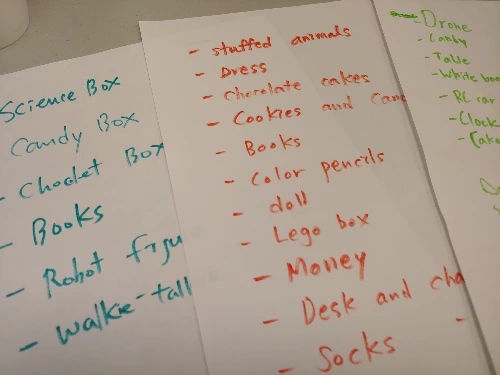 Science Box
Candy Box
- Choclet Box
- Books
- Robot figu
- Walkie-tall
- stuffed animals
- Dress
- chocolate cakes
- Cookies and Cand
- Books
- color pencils
- doll
- Lego box
- Money
- Desk and cha
- Socks
-
- Drone
- Candy
- Table
- White boa
- RC car
- Clock
- Cake